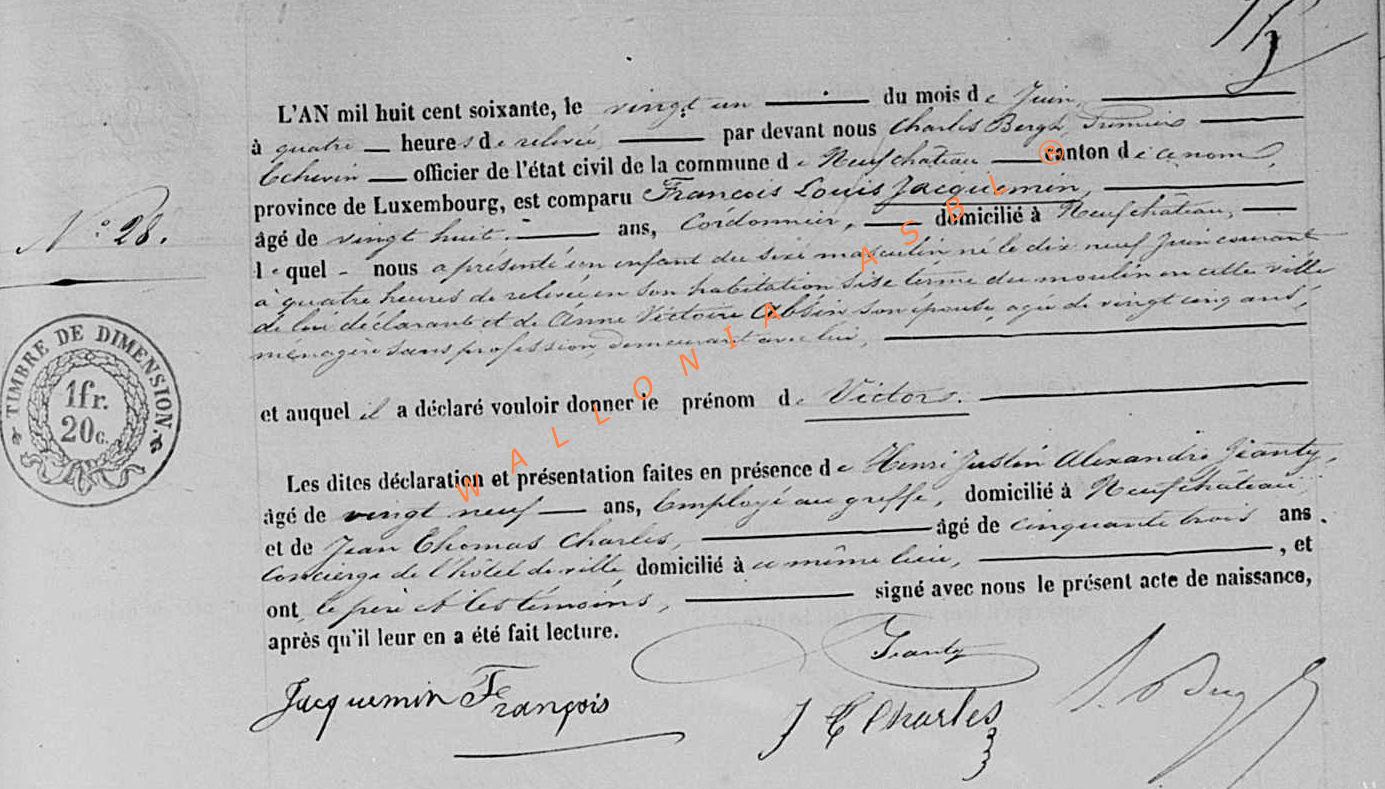 L'AN mil huit cent soixante, le vingt un du mois de Juin,
à quatre heures de relevée, par devant nous Charles Bergh, Premier
Echevin officier de l'état civil de la commune de Neufchateau canton de ce nom,
province de Luxembourg, est comparu François Louis Jacquemin,
âgé de vingt huit ans, Cordonnier, domicilié à Neufchateau,
N° 28.
lequel nous a présenté un enfant du sexe masculin né le dix neuf Juin courant
à quatre heures de relevée en son habitation sise terme du moulin en cette ville
de lui déclarant et de Anne Victoire Absin son épouse, agée de vingt cinq ans,
ménagère sans profession, demeurant avec lui,
TIMBRE DE DIMENSION.
1fr.
20c.
et auquel il a déclaré vouloir donner le prénom de Victor.
Les dites déclaration et présentation faites en présence de Henri Justin Alexandre Jeanty,
âgé de vingt neuf ans, Employé au greffe, domicilié à Neufchâteau,
et de Jean Thomas Charles, âgé de cinquante trois ans.
Concierge de l'hôtel de ville, domicilié à ce même lieu, , et
ont le père et les témoins, signé avec nous le présent acte de naissance,
après qu'il leur en a été fait lecture.
Jeanty
Jacquemin François
J T Charles
WALLONIA ASBL ®